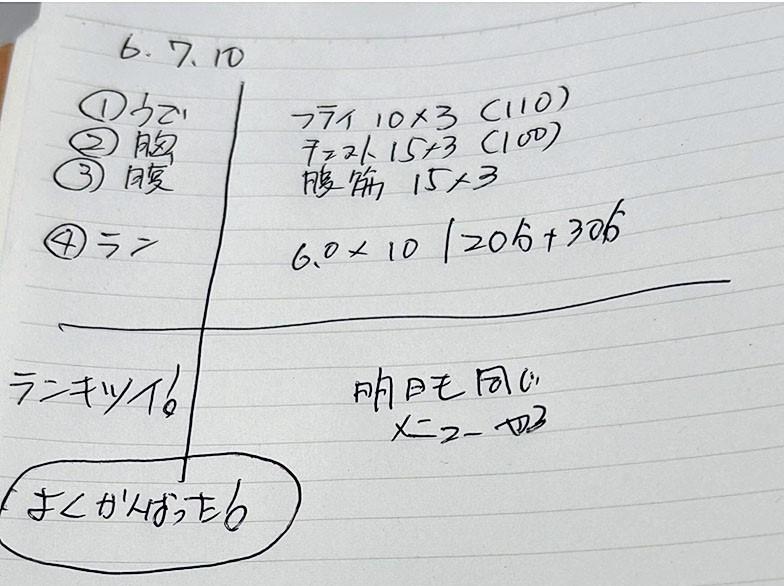 6.7.10
①うで フライ 10×3 (110)
②胸 チェスト 15×3 (100)
③腹 腹筋 15×3
④ラン 6.0×10 | 20分+30分
ランキツイ!
明日も同じ
メニュー
よくがんばった!